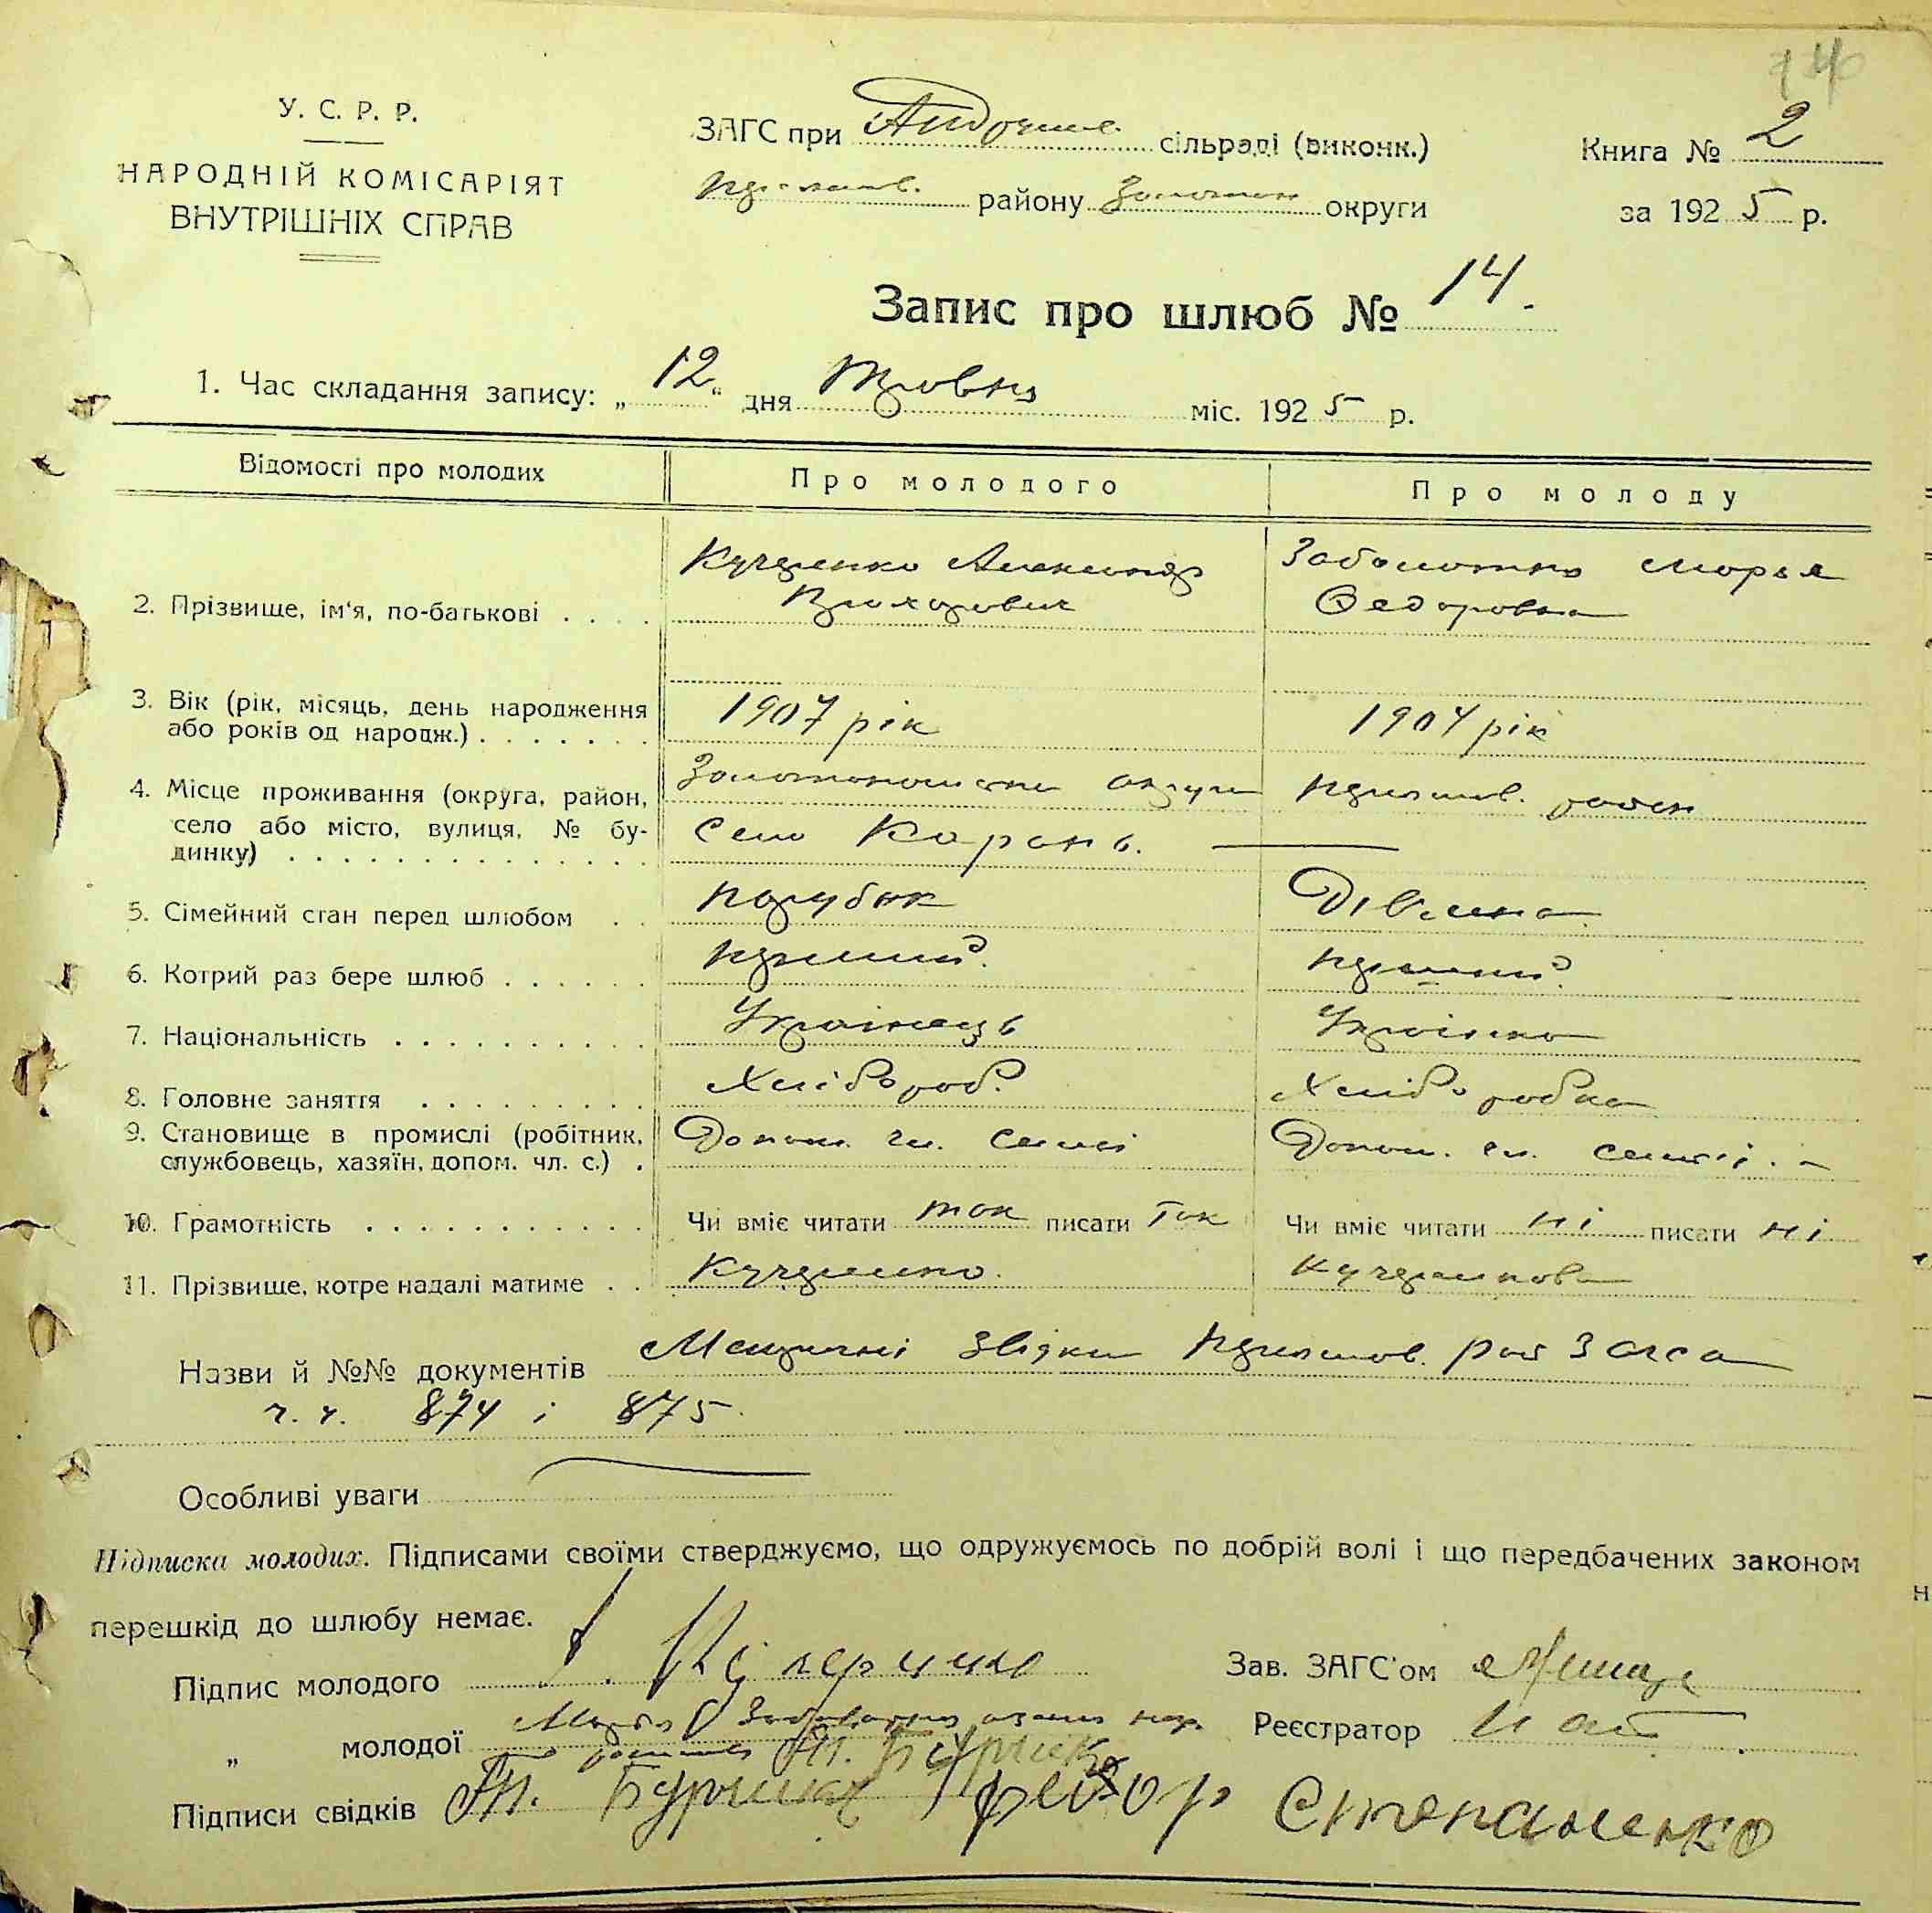 74
У. С. Р. Р.
НАРОДНІЙ КОМІСАРІЯТ
ВНУТРІШНІХ СПРАВ
ЗАГС при сільраді (виконк.)
району Золотон округи
Книга № 2
за 1925 р.
Запис про шлюб № 14.
1. Час складання запису: „12“ дня міс. 1925 р.
Відомості про молодих
Про молодого
Про молоду
2. Прізвище, ім'я, по-батькові . . . .
Кучеренко Александр
Заболотна Марья
Федоровна
3. Вік (рік, місяць, день народження
або років од народж.) . . . . . . .
1907 рік
1904 рік
4. Місце проживання (округа, район,
село або місто, вулиця, № бу-
динку) . . . . . . . . . . . . . . .
Золотоношська округа Переяслав. район
Село Карань.
5. Сімейний стан перед шлюбом . .
парубок
Дівчина
6. Котрий раз бере шлюб . . . . . .
перший
перший
7. Національність . . . . . . . . . .
Українець
Українка
8. Головне заняття . . . . . . . . .
Хлібороб.
Хліборобка
9. Становище в промислі (робітник,
службовець, хазяїн, допом. чл. с.) .
Допом. чл. семьі
Допом. чл. семьіі.
10. Грамотність . . . . . . . . . . .
Чи вміє читати так писати так
Чи вміє читати ні писати ні
11. Прізвище, котре надалі матиме . .
Кучеренко.
Назви й №№ документів звідки Переяслав. Рай Загса
ч. ч. 874 і 875.
Особливі уваги
Підписка молодих. Підписами своїми стверджуємо, що одружуємось по добрій волі і що передбачених законом
перешкід до шлюбу немає.
Підпис молодого
Зав. ЗАГС'ом
„ молодої
Реєстратор
Підписи свідків Федор Степаненко